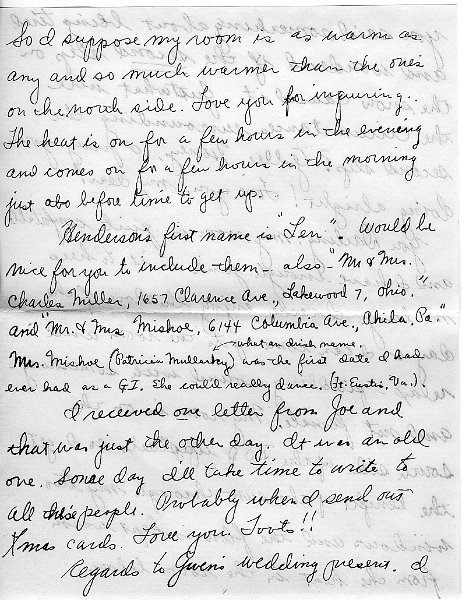 So I suppose my room is as warm as
any and so much warmer than the ones
on the north side. Love you for inquiring.
The heat is on for a few hours in the evening
and comes on for a few hours in the morning
just abo before time to get up.
Henderson's first name is "Len". Would be
nice for you to include them - also - "Mr. & Mrs.
Charles Miller, 1657 Clarence Ave., Lakewood 7, Ohio."
and "Mr. & Mrs. Mishoe, 6144 Columbia Ave., Phila. Pa."
what an Irish name.
Mrs. Mishoe (Patricia Mullarkey) was the first date I had
ever had as a GI. She could really dance. (Ft. Eustis, Va.).
I received one letter from Joe and
that was just the other day. It was an old
one. Some day I'll take time to write to
all these people. Probably when I send out
Xmas cards. Love you Toots!!
Regards to Gwen's wedding present. I